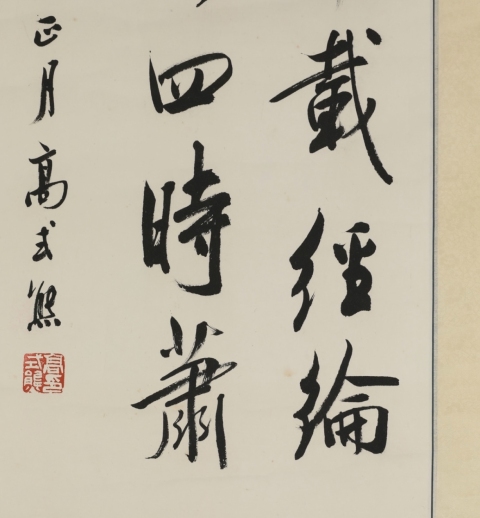 載經綸
四時蕭
正月高式熊
高式熊印